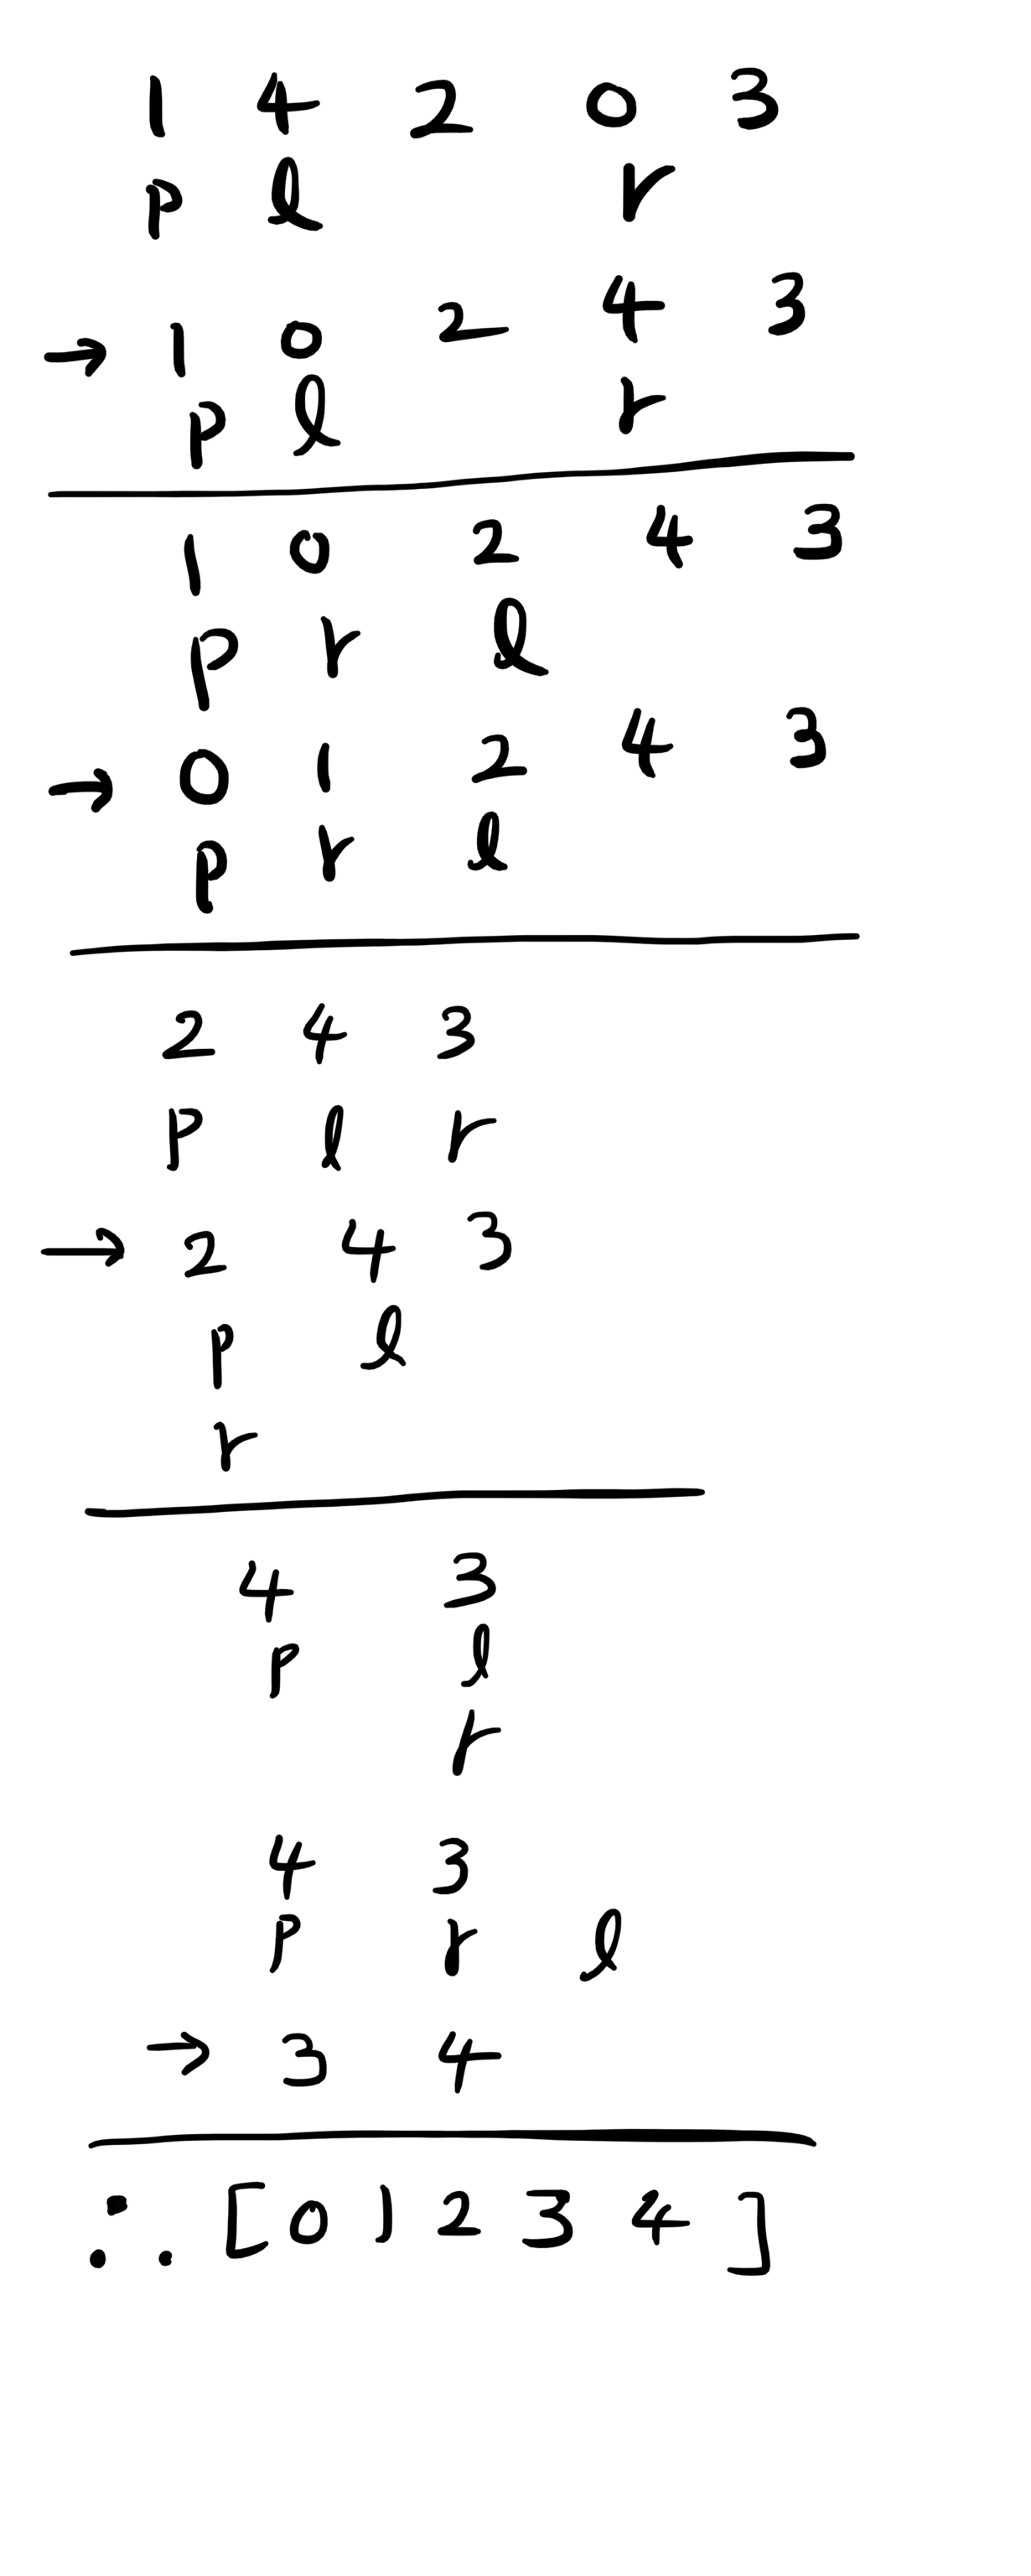 1 4 2 0 3
p l r
→ 1 0 2 4 3
p l r
1 0 2 4 3
p r l
→ 0 1 2 4 3
p r l
2 4 3
p l r
→ 2 4 3
p l
r
4 3
p l
r
4 3
p r l
→ 3 4
∴ [ 0 1 2 3 4 ]